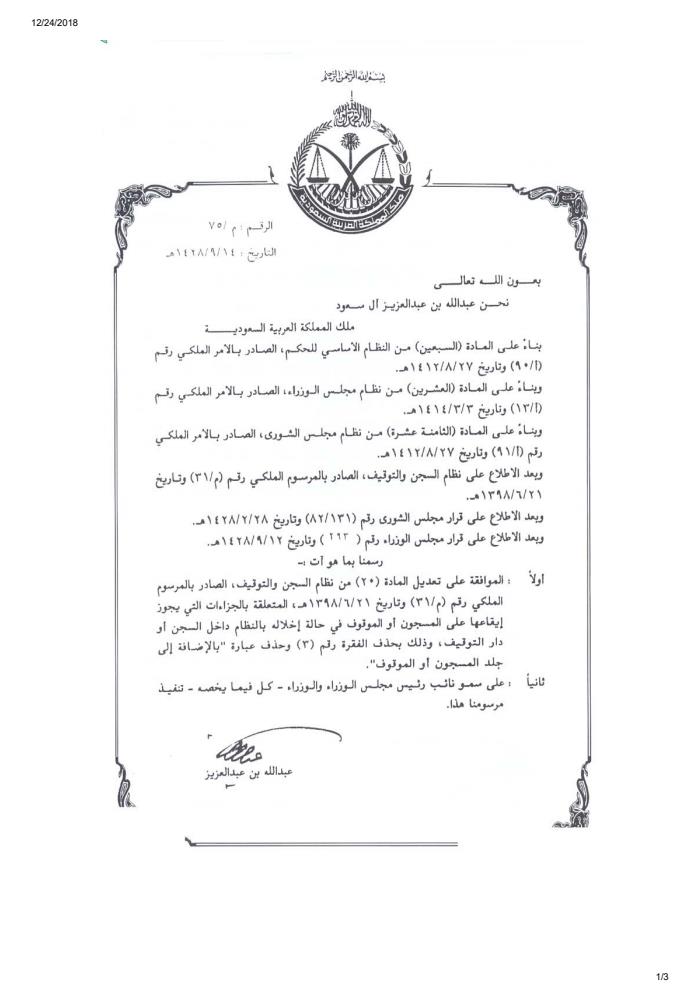 12/24/2018
بسم الله الرحمن الرحيم
ملك المملكة العربية السعودية
الرقم : م /٧٥
التاريخ : ١٤٢٨/٩/١٤هـ
بعــون اللــه تعالــى
نحــن عبدالله بن عبدالعزيز آل سعود
ملك المملكة العربية السعوديــة
بناءً على المادة (السبعين) من النظام الاساسي للحكم، الصادر بالامر الملكي رقم
(أ/٩٠) وتاريخ ١٤١٢/٨/٢٧هـ.
وبناءً على المادة (العشرين) من نظام مجلس الوزراء، الصادر بالامر الملكي رقم
(أ/١٣) وتاريخ ١٤١٤/٣/٣هـ.
وبناءً على المادة (الثامنة عشرة) من نظام مجلس الشورى، الصادر بالامر الملكي
رقم (أ/٩١) وتاريخ ١٤١٢/٨/٢٧هـ.
وبعد الاطلاع على نظام السجن والتوقيف، الصادر بالمرسوم الملكي رقم (م/٣١) وتاريخ
١٣٩٨/٦/٢١هـ.
وبعد الاطلاع على قرار مجلس الشورى رقم (٨٢/١٣١) وتاريخ ١٤٢٨/٢/٢٨هـ.
وبعد الاطلاع على قرار مجلس الوزراء رقم ( ٢٦٣ ) وتاريخ ١٤٢٨/٩/١٢هـ.
رسمنا بما هو آت :-
أولاً : الموافقة على تعديل المادة (٢٠) من نظام السجن والتوقيف، الصادر بالمرسوم
الملكي رقم (م/٣١) وتاريخ ١٣٩٨/٦/٢١هـ، المتعلقة بالجزاءات التي يجوز
إيقاعها على المسجون أو الموقوف في حالة إخلاله بالنظام داخل السجن أو
دار التوقيف، وذلك بحذف الفقرة رقم (٣) وحذف عبارة "بالإضافة إلى
جلد المسجون أو الموقوف".
ثانياً : على سمو نائب رئيس مجلس الوزراء والوزراء - كل فيما يخصه - تنفيذ
مرسومنا هذا.
عبدالله بن عبدالعزيز
1/3